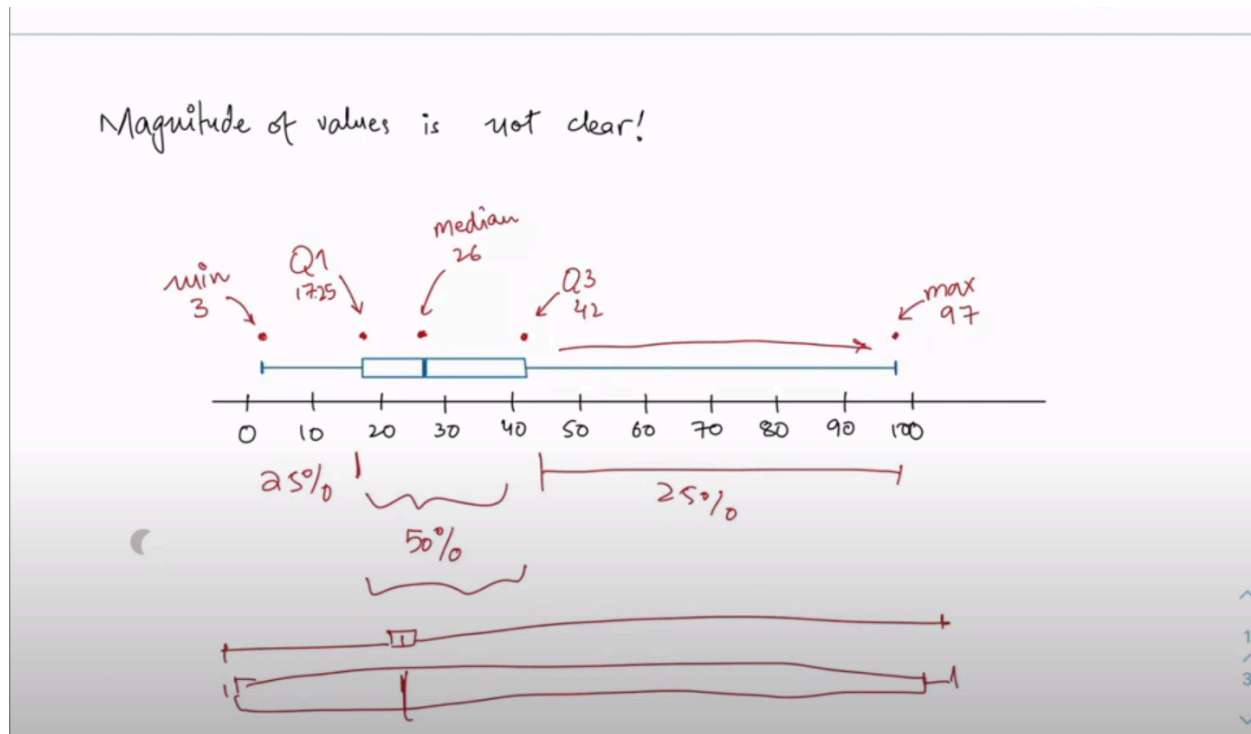 Magnitude of values is not clear!
median
26
Q1
17.25
min
3
Q3
42
max
97
0 10 20 30 40 50 60 70 80 90 100
25%
25%
50%
1
3